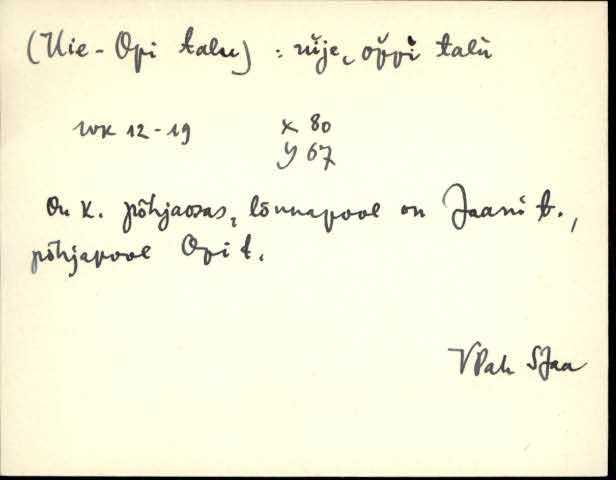 (Uie-Opi talu) : uïje, oppi talu
WK 12-19 X 80
Y 67
On k. põhjaosas, lõunapool on Jaani t.,
põhjapool Opi t.
VPah SJaa